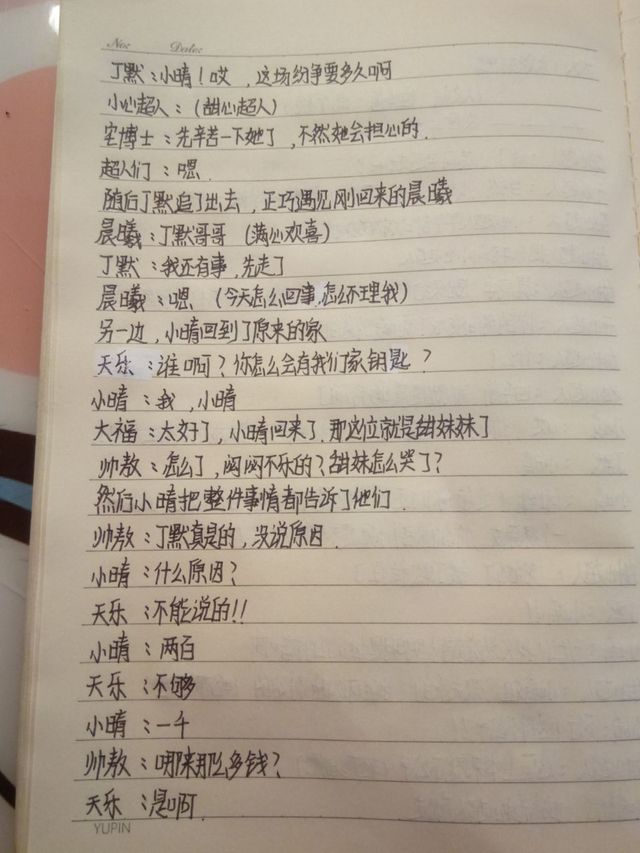 No:   Date:
丁默：小晴！哎，这场纷争要多久啊
小心超人：（甜心超人）
宅博士：先辛苦一下她了，不然她会担心的.
超人们：嗯.
随后丁默追了出去，正巧遇见刚回来的晨曦
晨曦：丁默哥哥（满心欢喜）
丁默：我还有事，先走了
晨曦：嗯（今天怎么回事，怎么不理我）
另一边，小晴回到了原来的家
天乐：谁啊？你怎么会有我们家钥匙？
小晴：我，小晴
大福：太好了，小晴回来了.那这位就是甜妹妹了
帅敖：怎么了，闷闷不乐的？甜妹怎么哭了？
然后小晴把整件事情都告诉了他们.
帅敖：丁默真是的，没说原因.
小晴：什么原因？
天乐：不能说的!!
小晴：两百
天乐：不够
小晴：一千
帅敖：哪来那么多钱？
天乐：是啊.
YUPIN